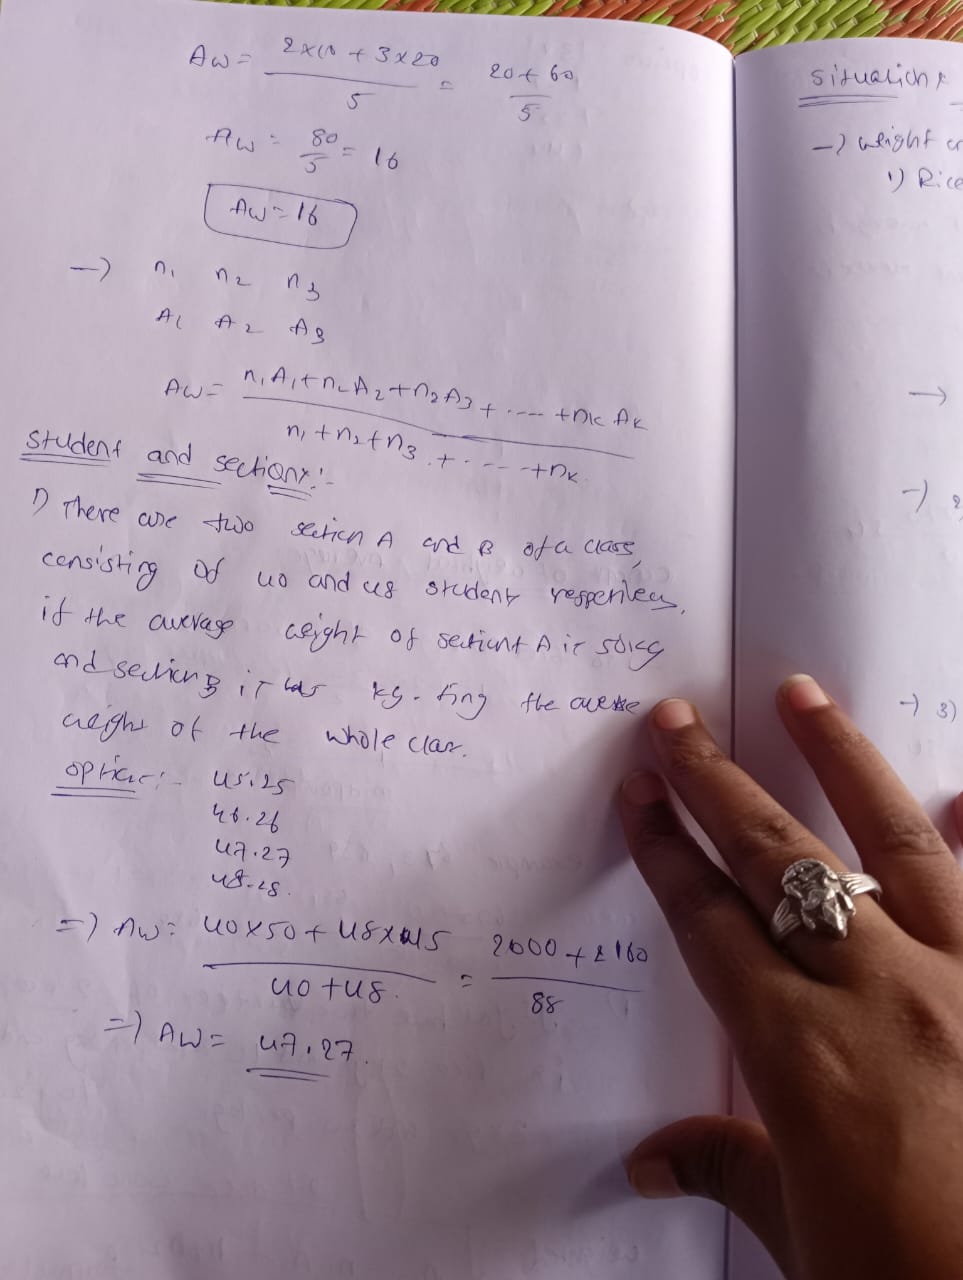 AW = 2x10 + 3x20 / 5 = 20 + 60 / 5
AW = 80/5 = 16
AW = 16
→ n1 n2 n3
A1 A2 A3
AW = n1A1 + n2A2 + n2A3 + ---- + nk Ak / n1 + n2 + n3 + ---- + nk
student and sections:-
1) There are two section A and B of a class,
consisting of 40 and 48 student
if the average weight of A is 50kg
and section B is kg. fing the
weight of the whole class.
option:- 45.25
46.26
47.27
48.28.
=) AW = 40x50 + 48x45 / 40+48. = 2000 + 2160 / 88
=) AW = 47.27.
situation
→ weight
1) Rice
→
→ 2)
→ 3)